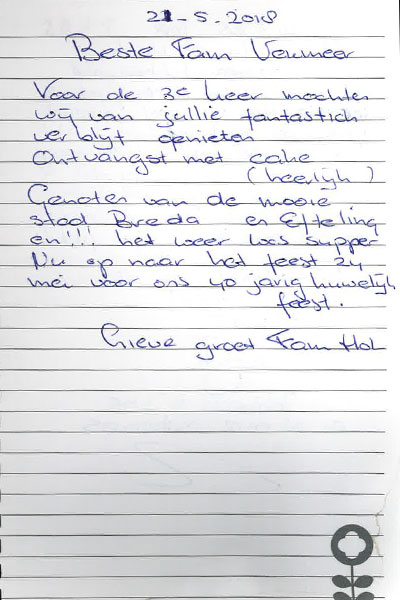 21-5-2018
Beste Fam Vermeer
Voor de 3e keer mochten
wij van jullie fantastich
verblijf genieten
Ontvangst met cake
(heerlijk)
Genoten van de mooie
stad Breda en Efteling
en!!! het weer was supper
Nu op naar het feest 24
mei voor ons 40 jarig huwelijk
feest.
Lieve groet Fam Hol